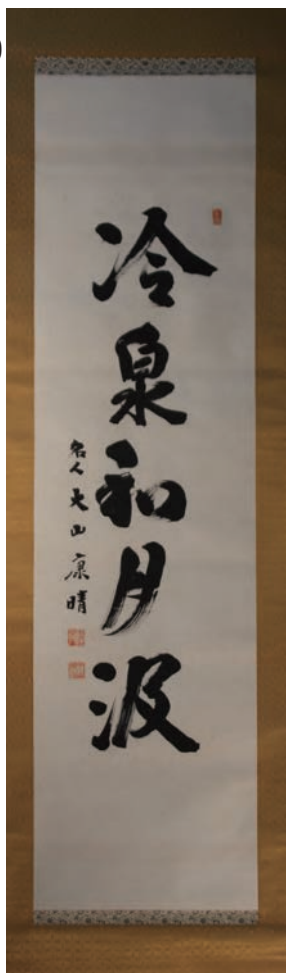 冷泉和月汲
名人 大山康晴